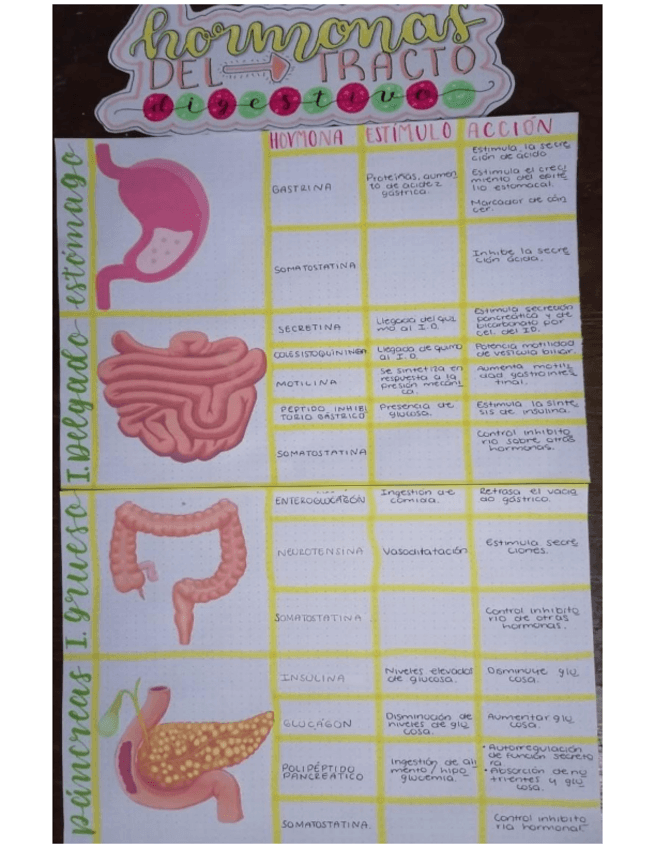 hormonas
DEL TRACTO
digestivo
HORMONA ESTÍMULO ACCIÓN
estómago
GASTRINA
Proteínas, aumen
to de acidez
gástrica.
Estimula la secre
ción de ácido
Estimula el creci
miento del epite
lio estomacal.
Marcador de cán
cer.
SOMATOSTATINA
Inhibe la secre
ción ácida.
I. Delgado
SECRETINA
Llegada del qui
mo al I.D.
Estimula secreción
pancreática y de
bicarbonato por
cel. del ID.
COLESISTOQUININA
Llegada de quimo
al I.D.
Potencia motilidad
de vesícula biliar.
MOTILINA
Se sintetiza en
respuesta a la
presión mecáni
ca.
Aumenta motili
dad gastrointes
tinal.
PÉPTIDO INHIBI
TORIO GÁSTRICO
Presencia de
glucosa.
Estimula la sínte
sis de insulina.
SOMATOSTATINA
Control inhibito
rio sobre otras
hormonas.
I. grueso
ENTEROGLUCAGÓN
Ingestión de
comida.
Retrasa el vacia
do gástrico.
NEUROTENSINA
Vasodilatación
Estimula secre
ciones.
SOMATOSTATINA
Control inhibito
rio de otras
hormonas.
páncreas
INSULINA
Niveles elevados
de glucosa.
Disminuye glu
cosa.
GLUCAGÓN
Disminución de
niveles de glu
cosa.
Aumentar glu
cosa.
POLIPÉPTIDO
PANCREÁTICO
Ingestión de ali
mento / hipo
glucemia.
• Autorregulación
de función secreto
ra
• Absorción de nu
trientes y glu
cosa.
SOMATOSTATINA.
Control inhibito
rio hormonal.